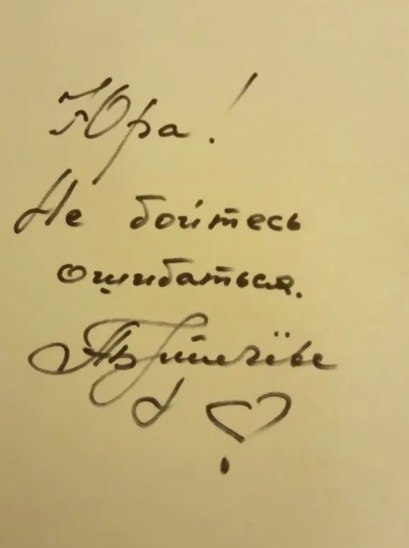 Юра!
Не бойтесь
ошибаться.